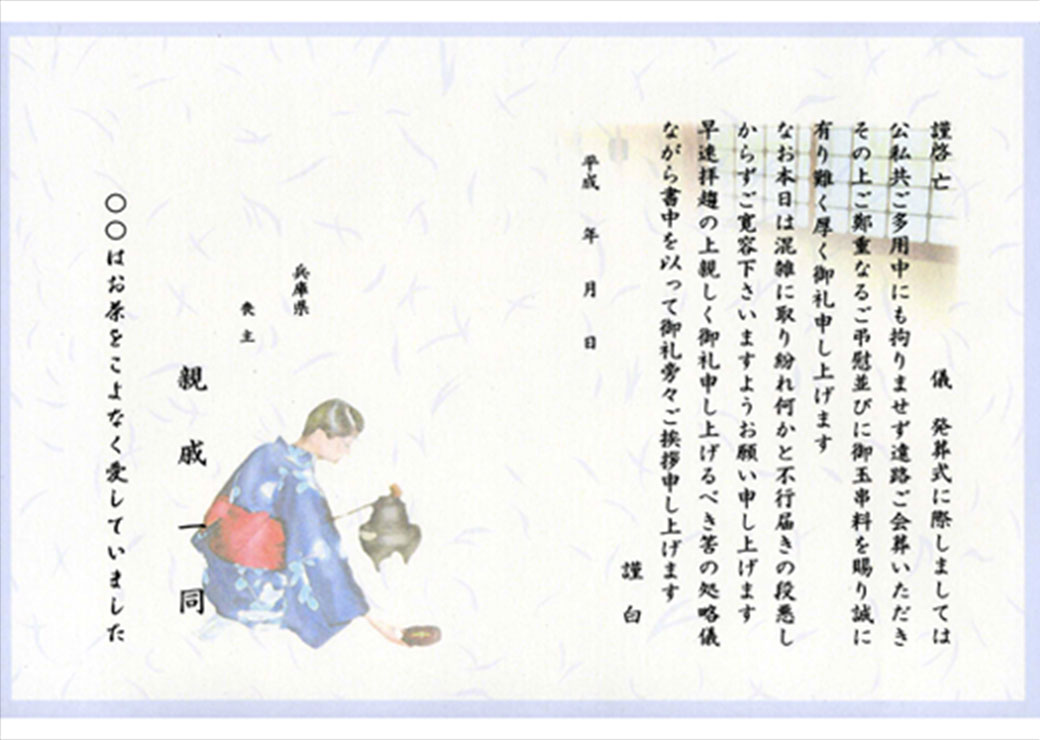 謹啓 亡 儀 発葬式に際しましては
公私共ご多用中にも拘りませず遠路ご会葬いただき
その上ご鄭重なるご弔慰並びに御玉串料を賜り誠に
有り難く厚く御礼申し上げます
なお本日は混雑に取り紛れ何かと不行届きの段悪し
からずご寛容下さいますようお願い申し上げます
早速拝趨の上親しく御礼申し上げるべき筈の処略儀
ながら書中を以って御礼旁々ご挨拶申し上げます
謹白
平成 年 月 日
兵庫県
喪主
親戚一同
〇〇はお茶をこよなく愛していました